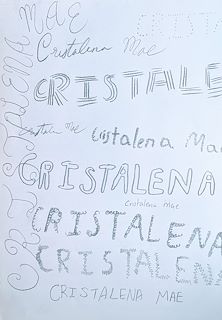 CRISTALENA MAE
CRIST
Cristalena Mae
CRISTALE
Cristalena Mae
Cristalena Ma
CRISTALENA
Cristalena Mae
CRISTALENA
CRISTALENA
CRISTALENA MAE